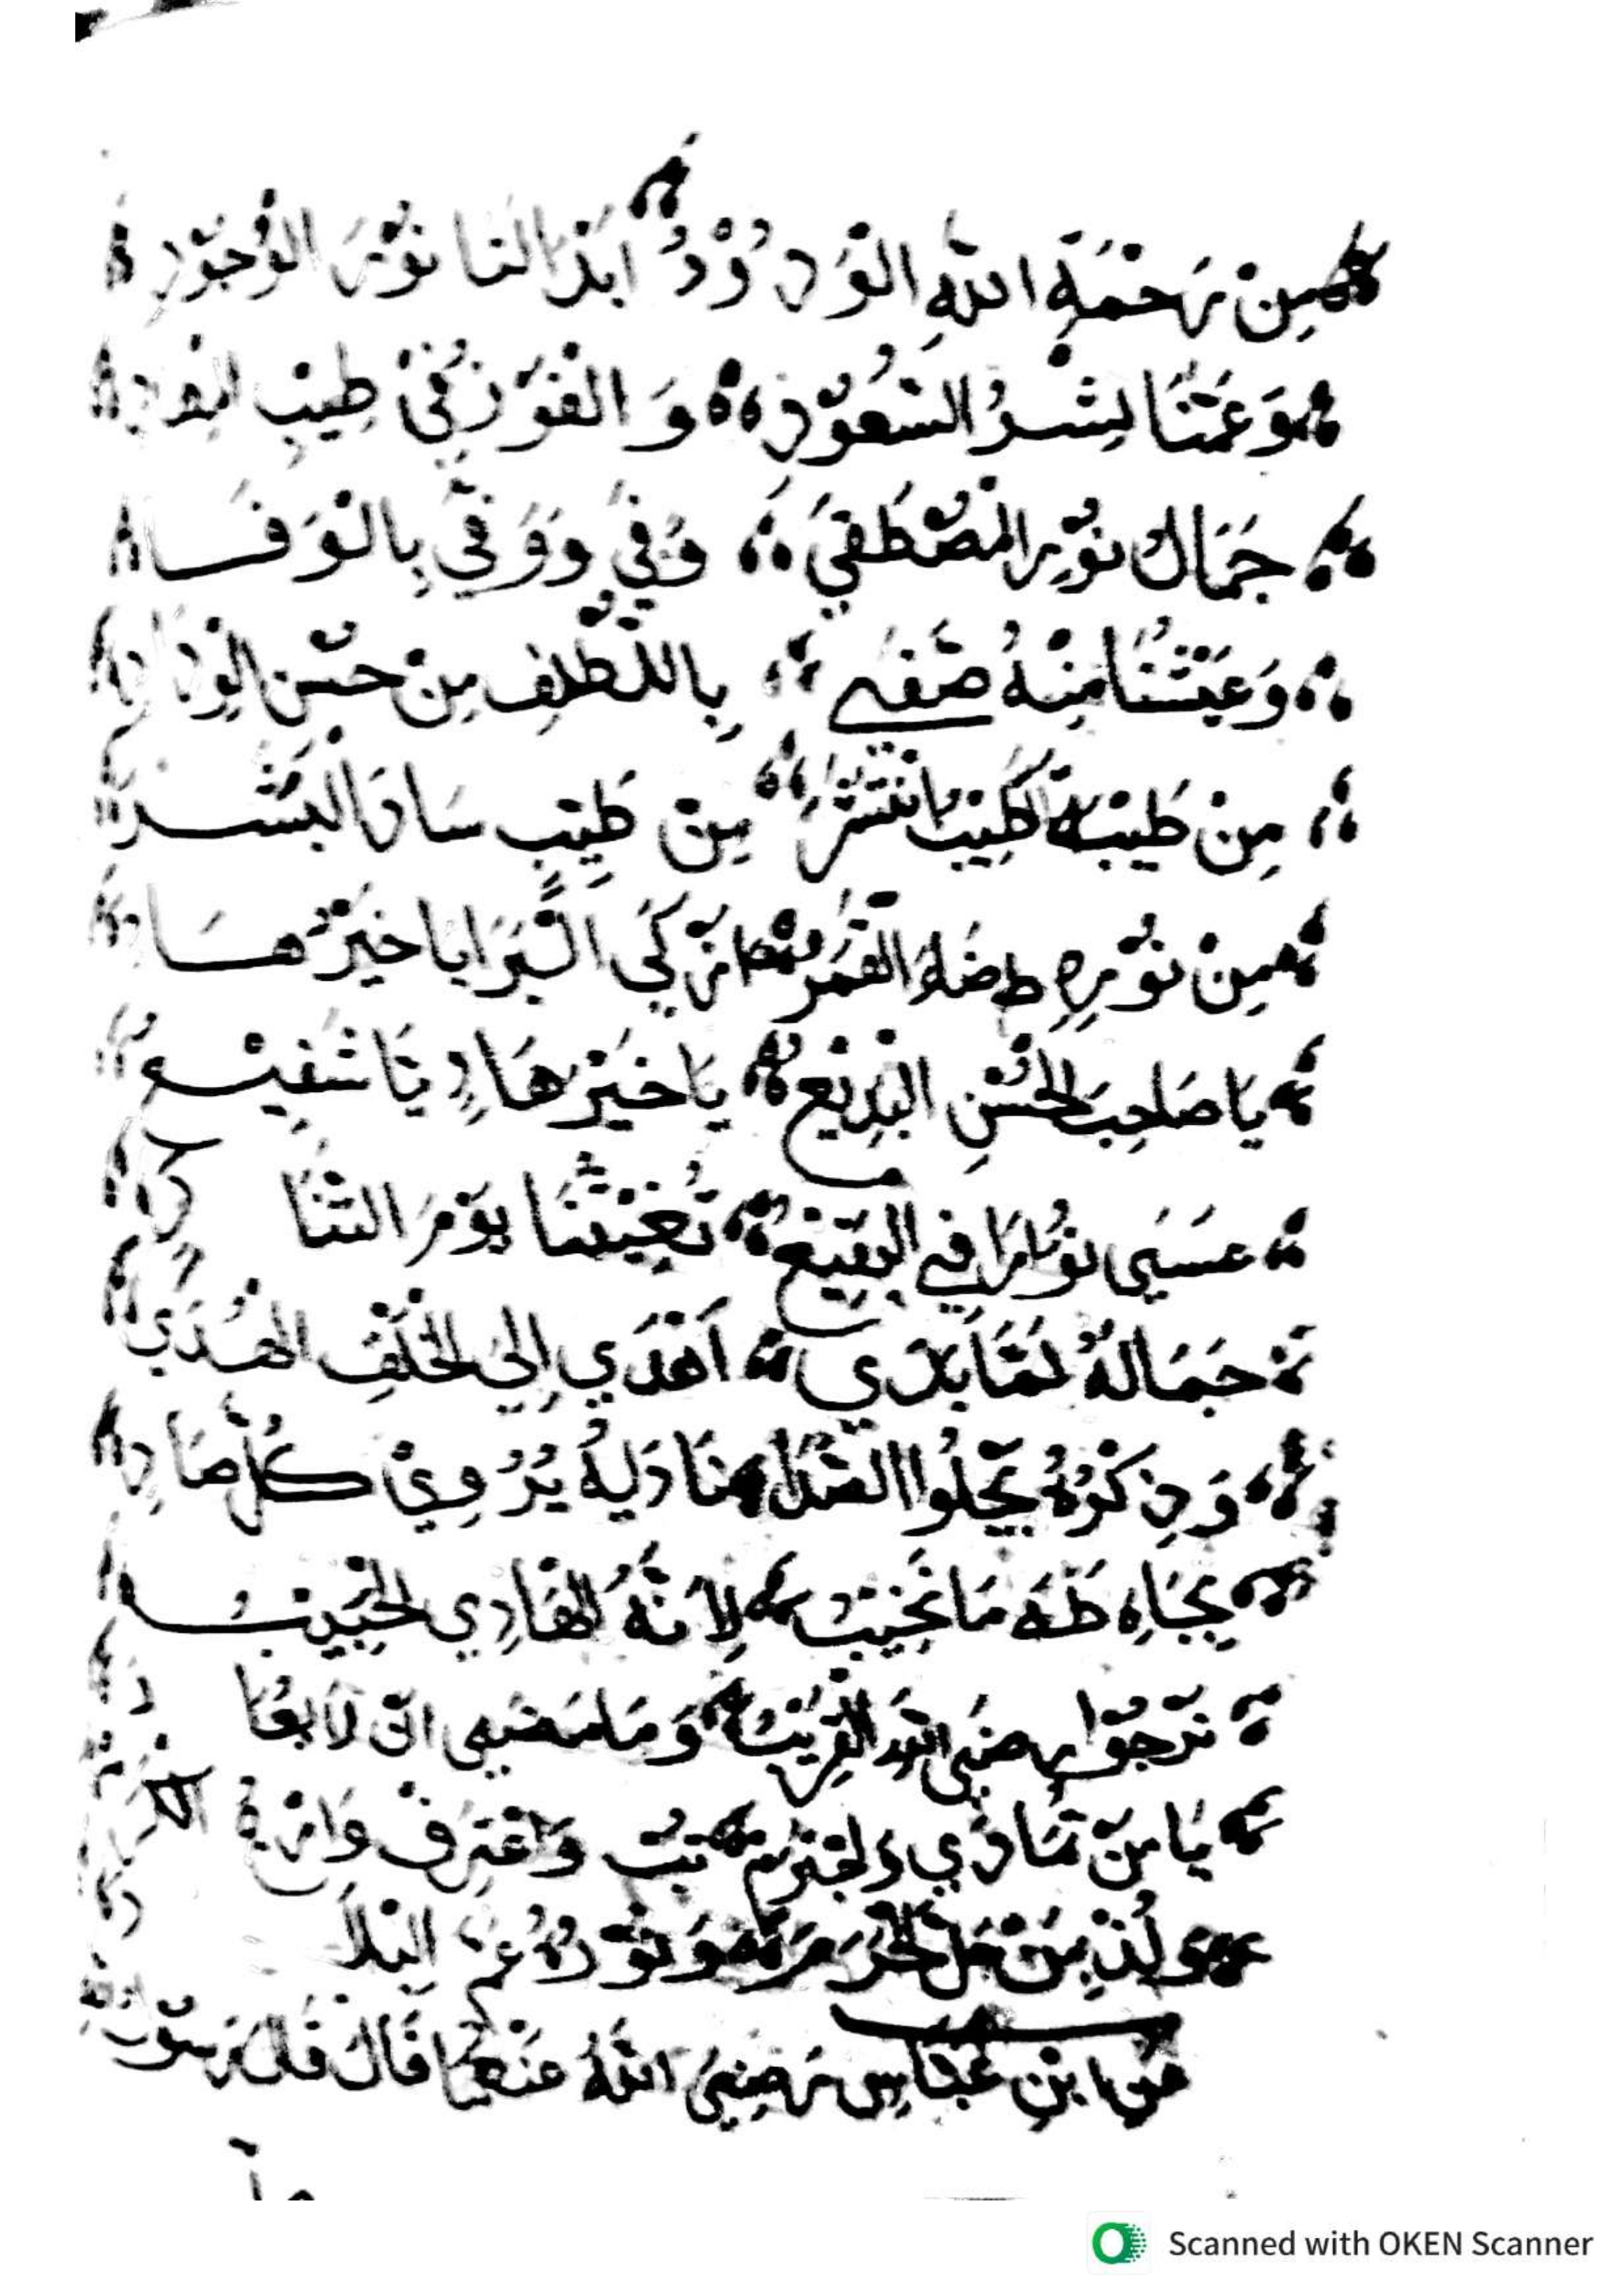 مِنْ رَحْمَةِ اللّٰهِ الْوَدُوْدُ اَبْدَا لَنَا نُوْرَ الْوُجُوْدِ
وَعَمَّنَا بِشْرُ السُّعُوْدِ وَالْفَوْزُ فِيْ طِيْبِ
جَمَالُ نُوْرِ الْمُصْطَفَي وُفِيْ وَوَفِّيْ بِالْوَفَا
وَعَيْشُنَا مِنْهُ صَفَي بِاللُّطْفِ مِنْ حُسْنِ الْوِدَادِ
مِنْ طَيْبَةَ طِيْبًا انْتَشَرَ مِنْ طِيْبِ سَادَ الْبَشَر
مِنْ نُوْرِهِ ضَاءَ الْقَمَرُ اَزْكَي الْبَرَايَا خَيْرُ هَادِ
يَا صَاحِبَ الْحُسْنِ الْبَدِيْعِ يَا خَيْرَ هَادٍ يَا شَفِيْعُ
عَسَي نُزَارَا فِي الْبَقِيْعِ تُغِيْثُنَا يَوْمَ التَّنَادِ
جَمَالُهُ لَمَّا بَدَي اَهْدَي اِلَي الْخَلْفِ الْهُدَي
وَذِكْرُهُ يَجْلُوا الصَّدَا نَادِيْهِ يُرْوِيْ كُلَّ صَادِ
بِجَاهِ طٰهَ مَا نَخِيْبُ لِاَنَّهُ الْهَادِي الْحَبِيْبُ
نَرْجُوْا رِضَي اللّٰهِ الْقَرِيْبُ وَمَا مَضَي لَا يُعَادُ
يَا مَنْ تَمَادَي وَاجْتَرَمَ تُبْ وَاعْتَرِفْ وَارْجُ الْكَرَمْ
وَلُذْ بِمَنْ حَلَّ الْحَرَمَ وَنُوْرُهُ عَمَّ الْبِلَادِ
عَنِ ابْنِ عَبَّاسٍ رَضِيَ اللّٰهُ عَنْهُمَا قَالَ قَالَ رَسُوْلُ اللّٰهِ
Scanned with OKEN Scanner